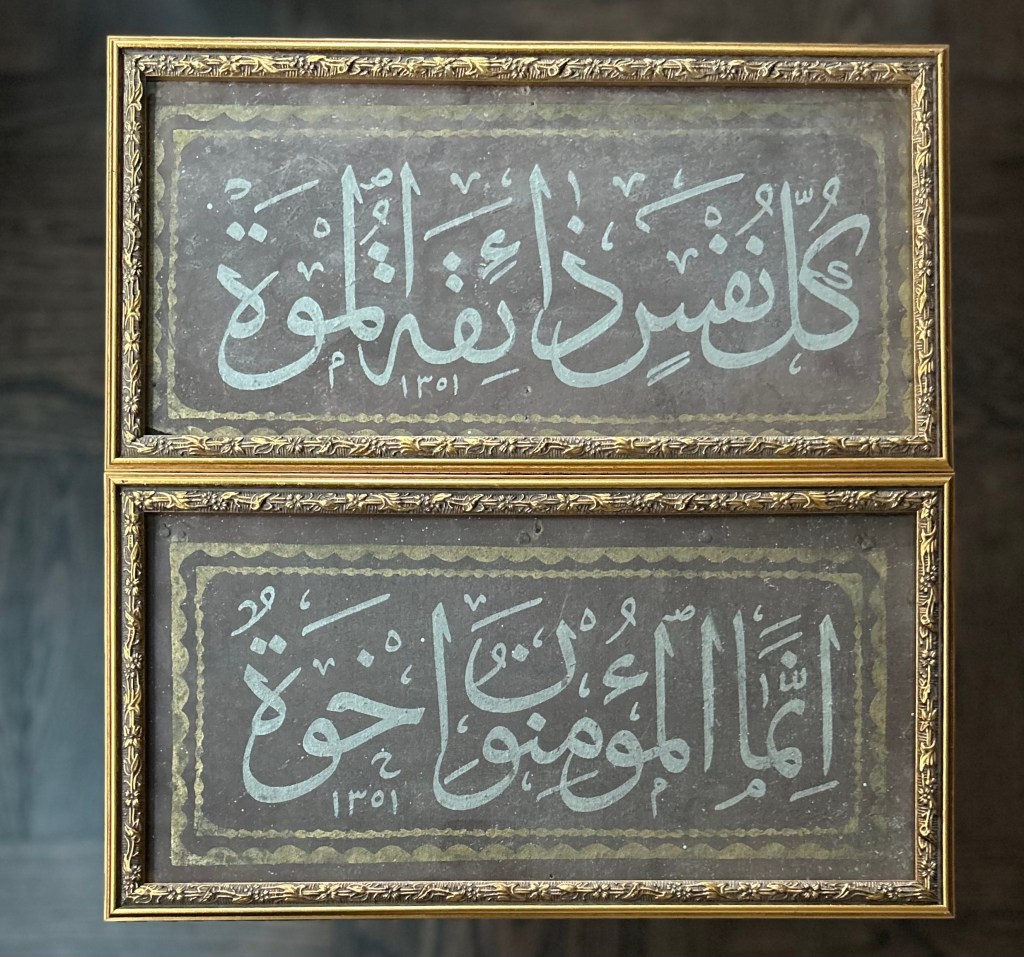 كُلُّ نَفْسٍ ذَائِقَةُ الْمَوْةِ
١٣٥١
اِنَّمَا الْمُؤْمِنُونَ اِخْوَةٌ
١٣٥١